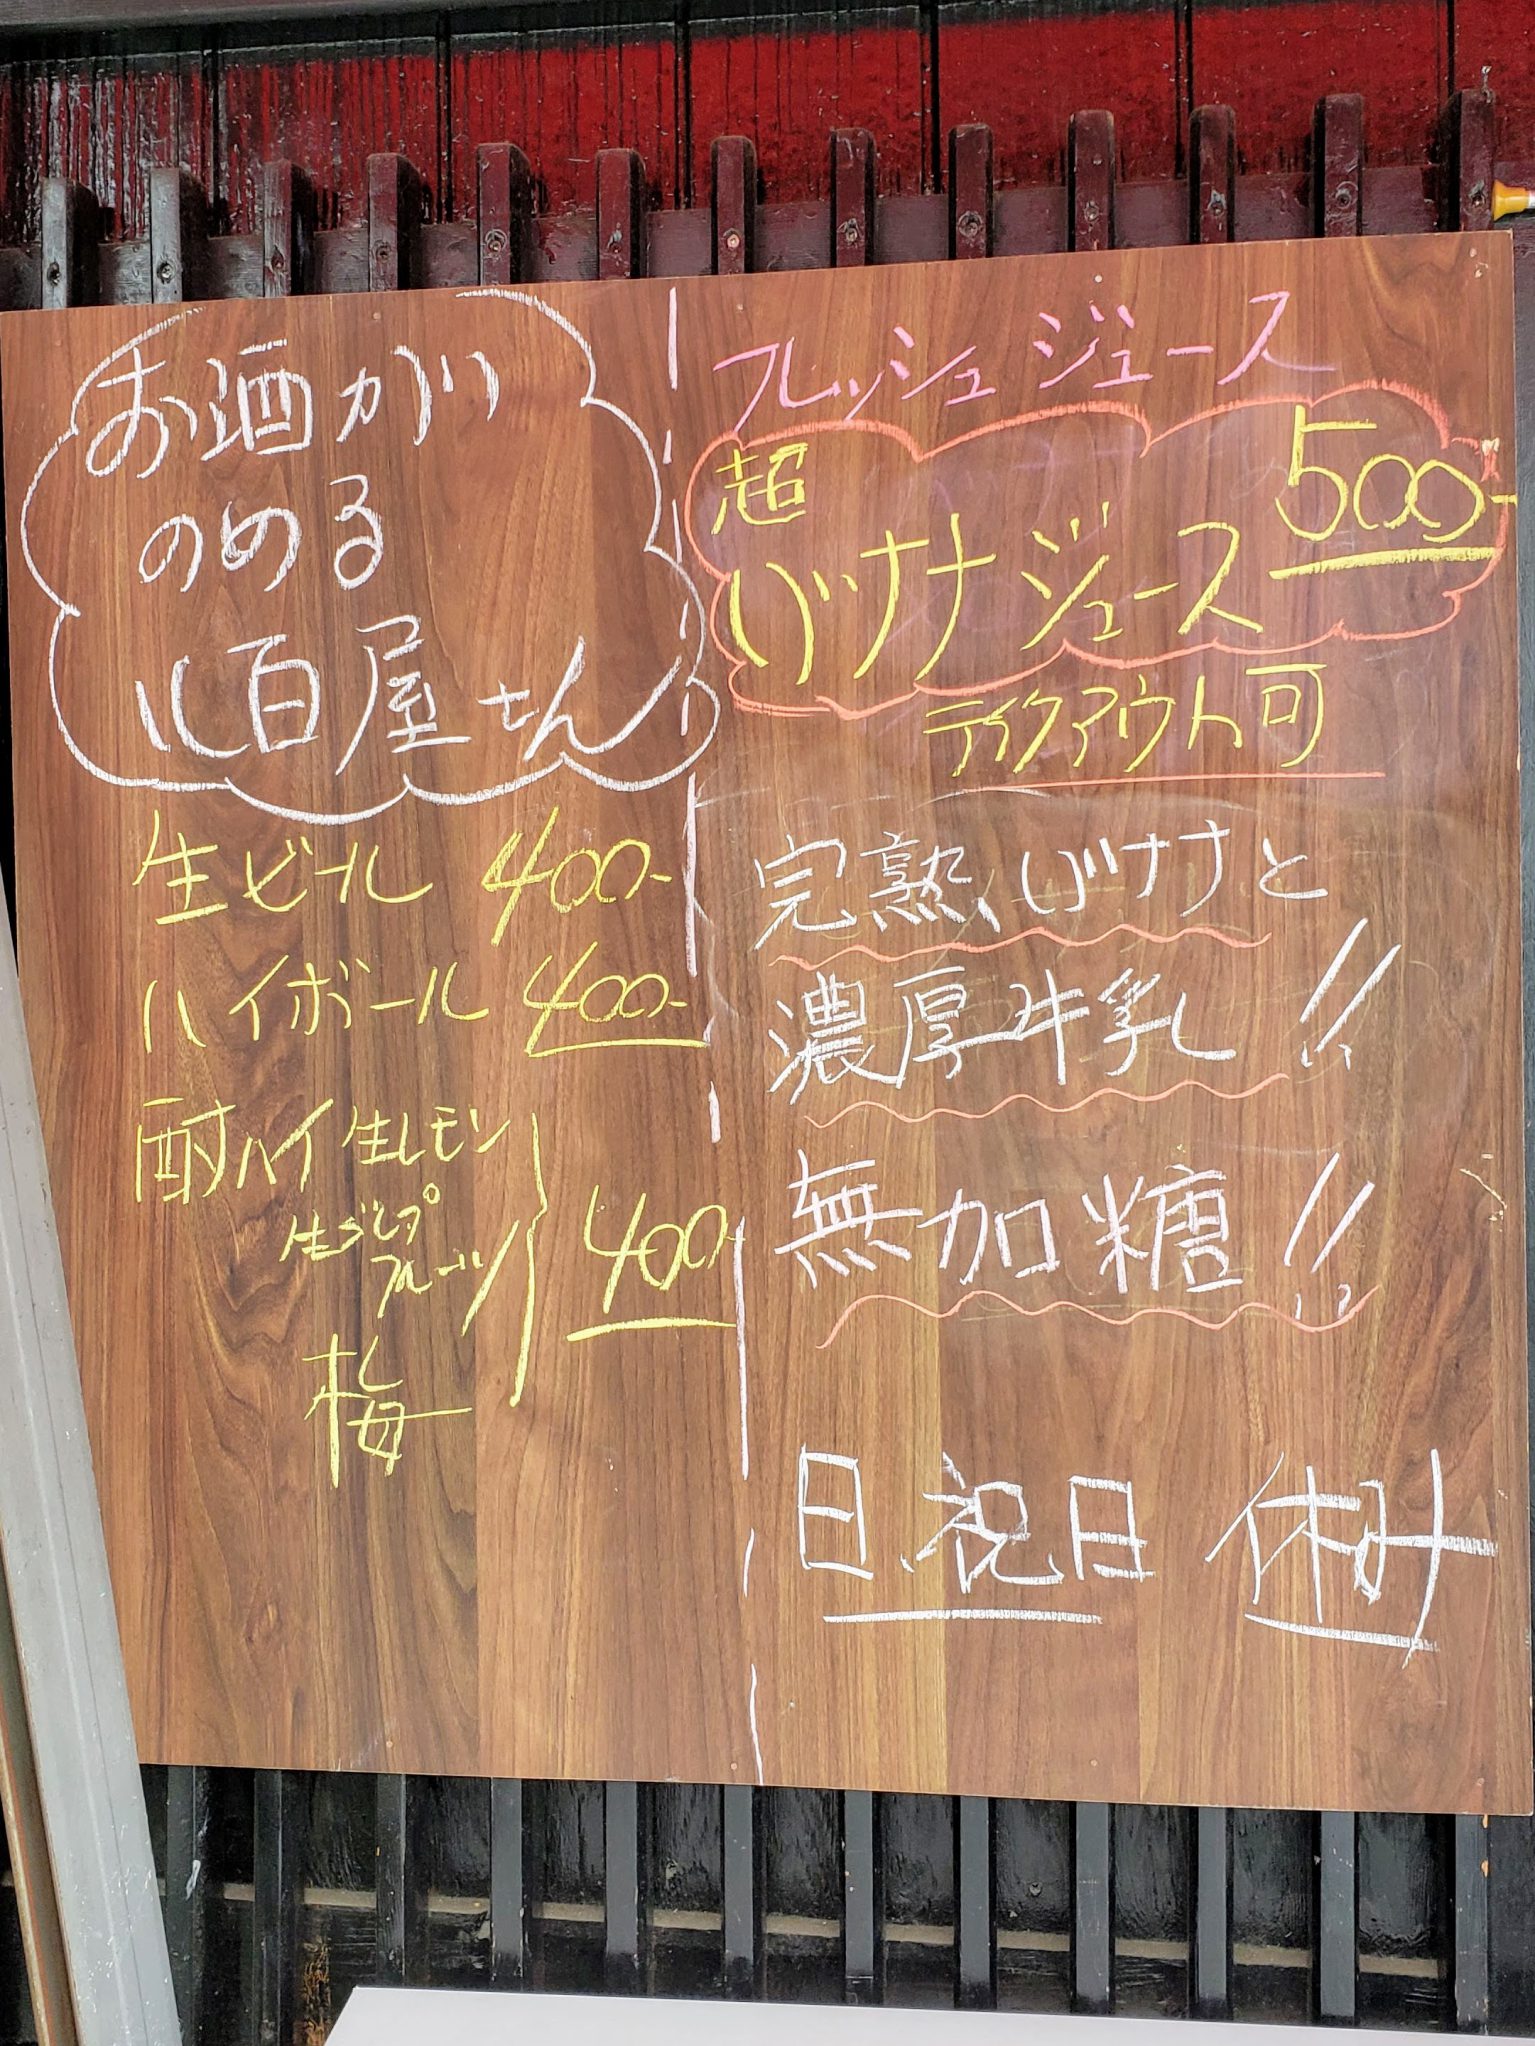 お酒が
のめる
八百屋さん
生ビール 400-
ハイボール 400-
酎ハイ 生レモン
生グレープ
フルーツ
400-
梅
フレッシュジュース
超
バナナジュース 500-
テイクアウト可
完熟バナナと
濃厚牛乳!!
無加糖!!
日、祝日 休み